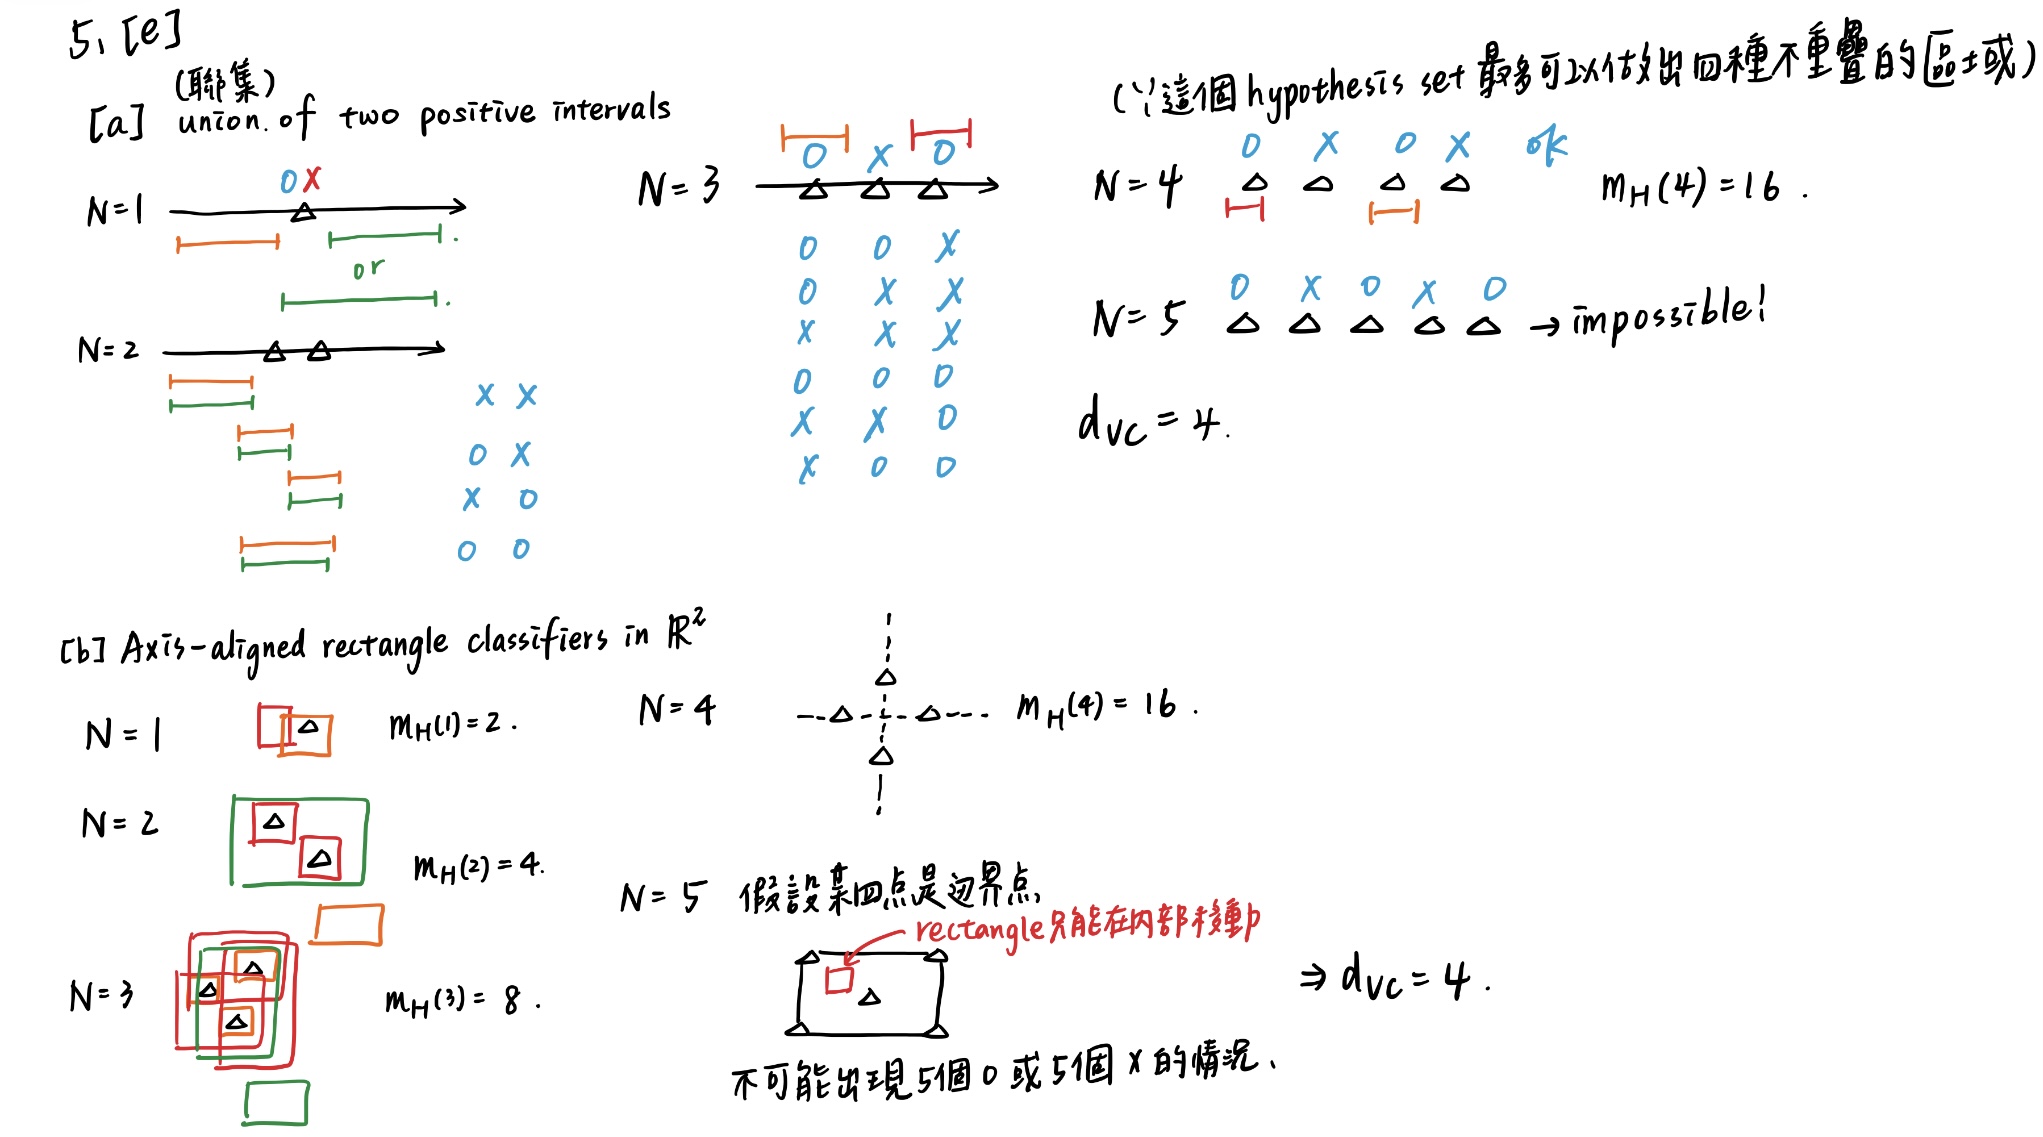 5. [e]
[a] (聯集)
union of two positive intervals
N=1
O X
or
N=2
X X
O X
X O
O O
N=3
O X O
O O X
O X X
X X X
O O O
X X O
X O O
(∵這個 hypothesis set 最多可以做出四種不重疊的區域)
N=4
O X O X ok
m_H(4) = 16.
N=5
O X O X O
→ impossible!
d_VC = 4.
[b] Axis-aligned rectangle classifiers in ℝ²
N=1 m_H(1) = 2.
N=2 m_H(2) = 4.
N=3 m_H(3) = 8.
N=4 m_H(4) = 16.
N=5 假設某四点是边界点,
rectangle只能在內部移動
不可能出現5個O或5個X的情況、
⇒ d_VC = 4.